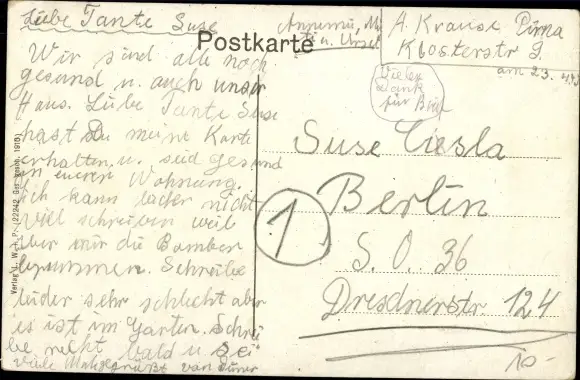 Liebe Tante Suse
Wir sind alle noch
gesund u. auch unser
Haus. Liebe Tante Suse
hast Du meine Karte
erhalten, u. seid gesund
in eurer Wohnung.
Ich kann leider nicht
viel schreiben weil
über mir die Bomber
brummen. Schreibe
leider sehr schlecht aber
es ist im Garten. Schrei
be recht bald u. sei
viele Mal gegrüßt von
Postkarte
A. Krause Pirna
Klosterstr 9.
am 23.
Vielen
Dank
für Brief
Suse Ciesla
Berlin
S. O. 36
Dresdnerstr. 124
1
10-